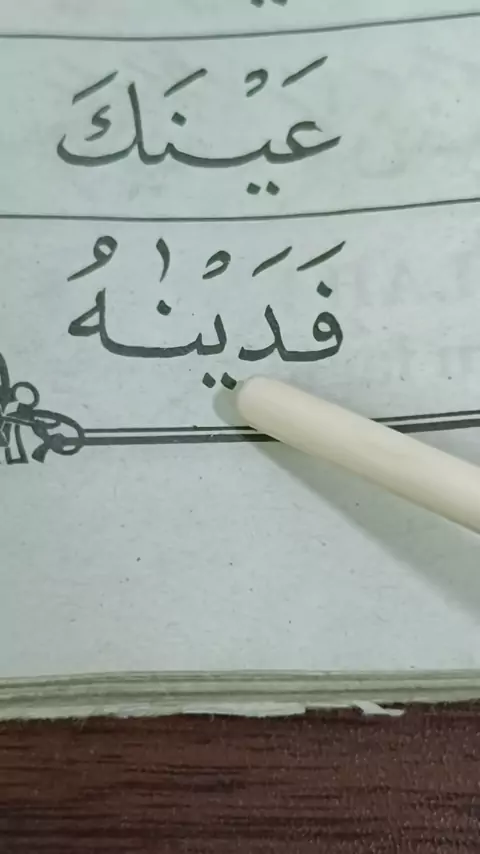 عَيْنَكَ
فَدَيْنٰهُ